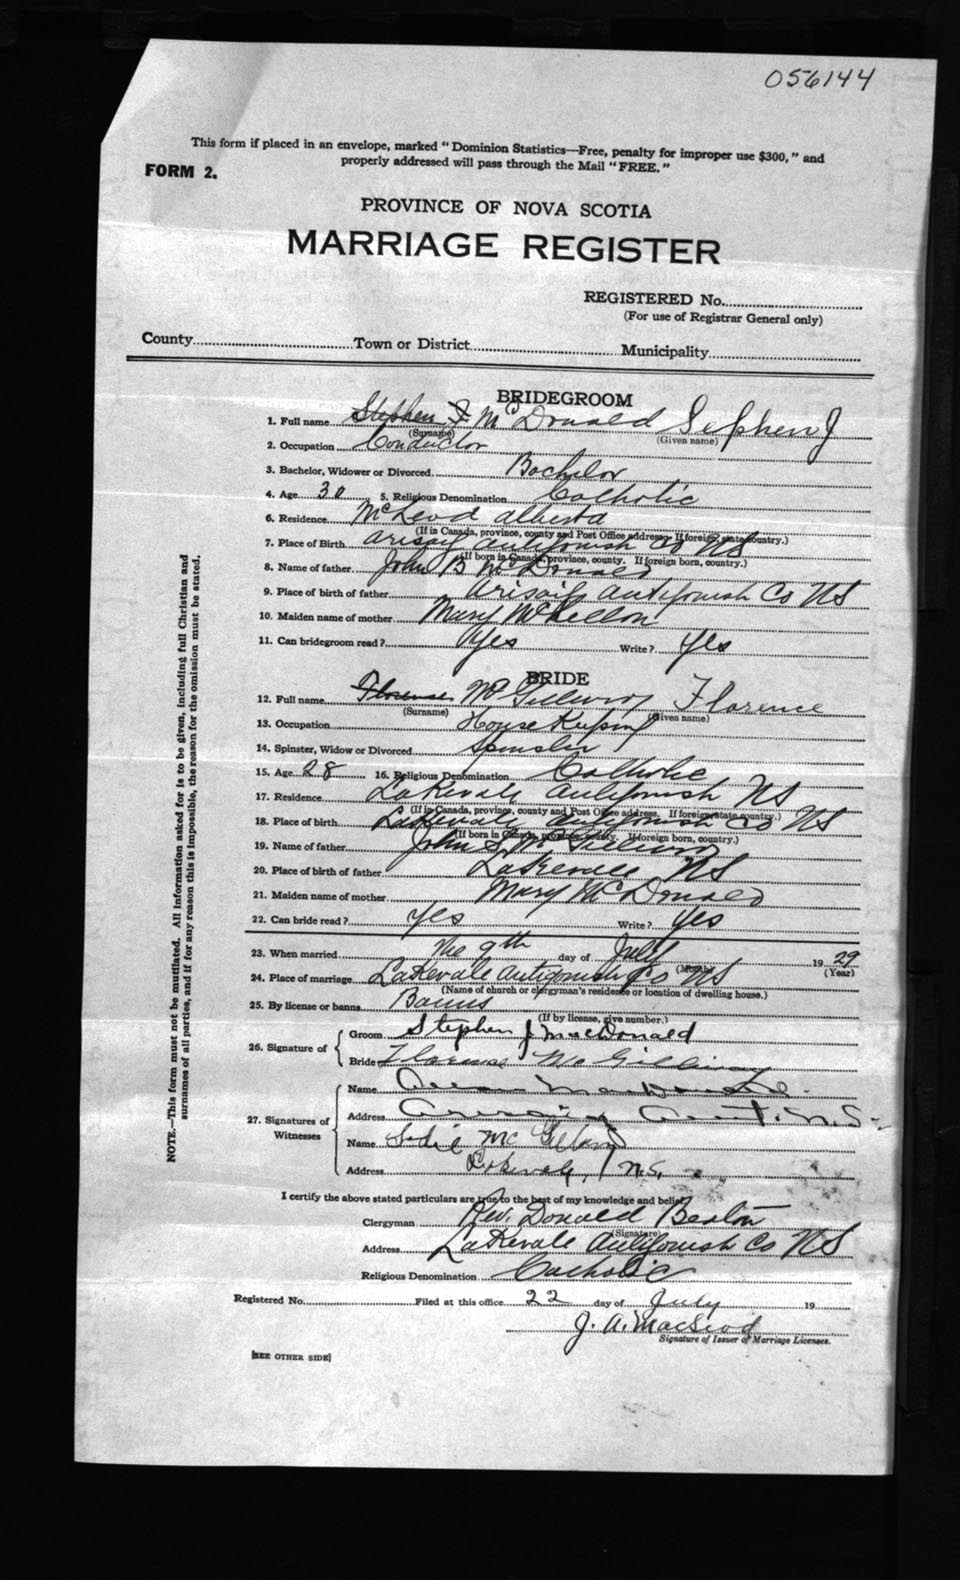 056144
This form if placed in an envelope, marked "Dominion Statistics—Free, penalty for improper use $300," and
properly addressed will pass through the Mail "FREE."
FORM 2.
PROVINCE OF NOVA SCOTIA
MARRIAGE REGISTER
REGISTERED No.
(For use of Registrar General only)
County Town or District Municipality
BRIDEGROOM
1. Full name Stephen J McDonald Stephen J
(Surname) (Given name)
2. Occupation Conductor
3. Bachelor, Widower or Divorced Bachelor
4. Age 30 5. Religious Denomination Catholic
6. Residence McLeod Alberta
(If in Canada, province, county and Post Office address. If foreign, state country.)
7. Place of Birth Arisaig Antigonish Co NS
(If born in Canada, province, county. If foreign born, country.)
8. Name of father John B McDonald
9. Place of birth of father Arisaig Antigonish Co NS
10. Maiden name of mother Mary McLellan
11. Can bridegroom read? Yes Write? Yes
BRIDE
12. Full name Florence McGillivray Florence
(Surname) (Given name)
13. Occupation House Keeping
14. Spinster, Widow or Divorced Spinster
15. Age 28 16. Religious Denomination Catholic
17. Residence Lakevale Antigonish NS
(If in Canada, province, county and Post Office address. If foreign state country.)
18. Place of birth Lakevale Antigonish Co NS
(If born in Canada, province, county. If foreign born, country.)
19. Name of father John S McGillivray
20. Place of birth of father Lakevale NS
21. Maiden name of mother Mary McDonald
22. Can bride read? Yes Write? Yes
23. When married The 9th day of July 1929
(Month) (Year)
24. Place of marriage Lakevale Antigonish Co NS
(Name of church or clergyman's residence or location of dwelling house.)
25. By license or banns Banns
(If by license, give number.)
26. Signature of Groom Stephen J MacDonald
Bride Florence McGillivray
27. Signatures of Witnesses Name MacDonald
Address Arisaig Ant. N.S.
Name Sadie McGillivray
Address Lakevale, N.S.
I certify the above stated particulars are true to the best of my knowledge and belief.
Clergyman Rev. Donald Beaton
(Signature)
Address Lakevale Antigonish Co NS
Religious Denomination Catholic
Registered No. Filed at this office 22 day of July 19
J. A. MacLeod
Signature of Issuer of Marriage Licenses.
[SEE OTHER SIDE]
NOTE.—This form must not be mutilated. All information asked for is to be given, including full Christian and
surnames of all parties, and if for any reason this is impossible, the reason for the omission must be stated.